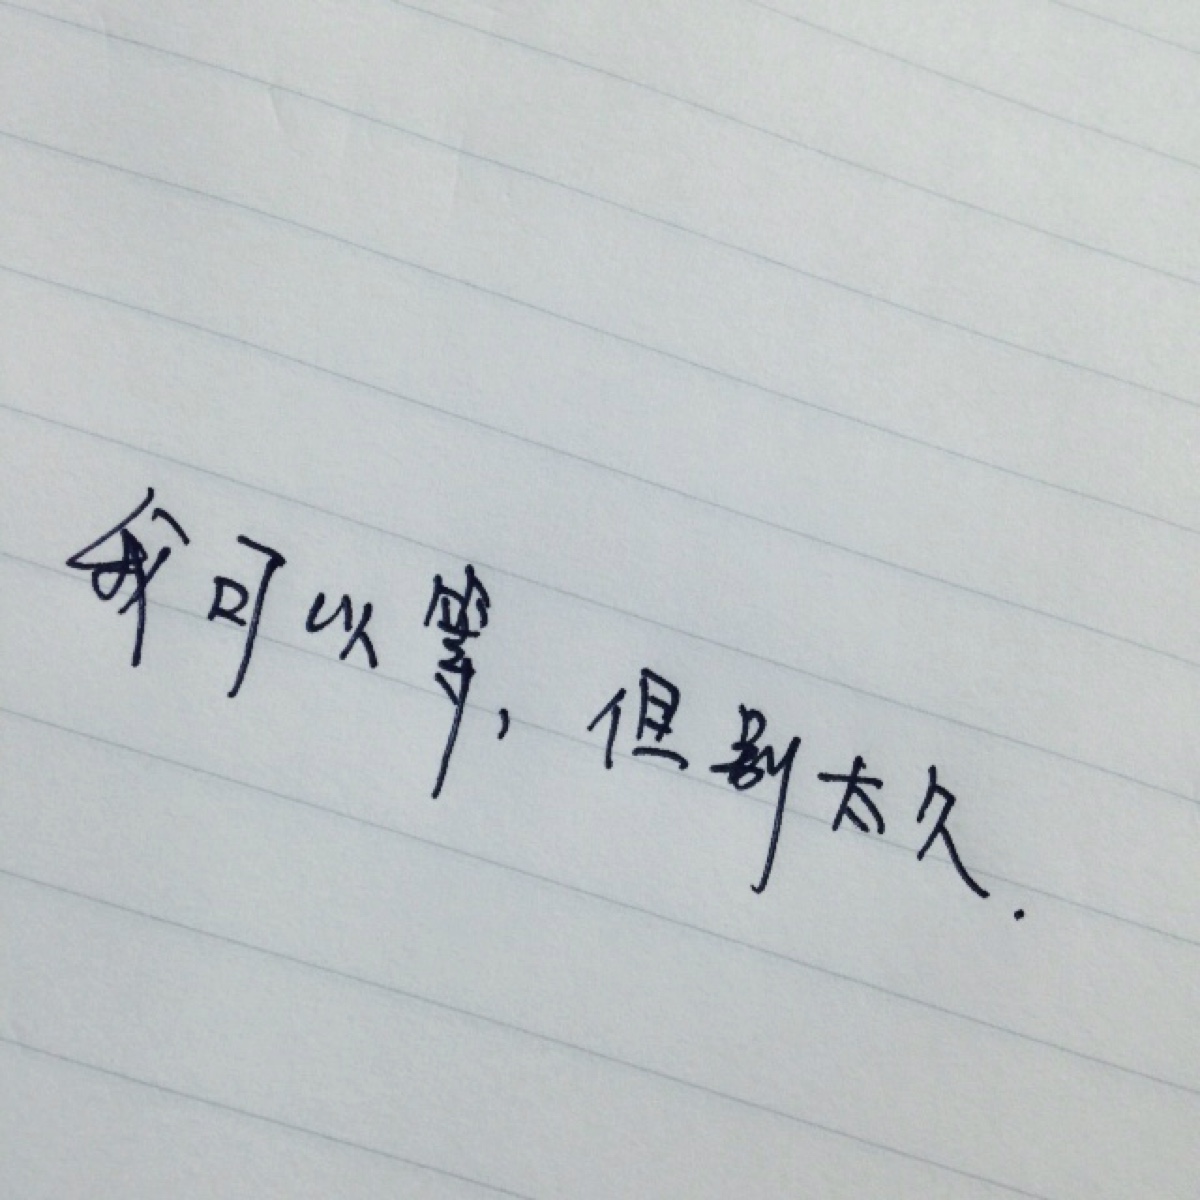 我可以等，但别太久.